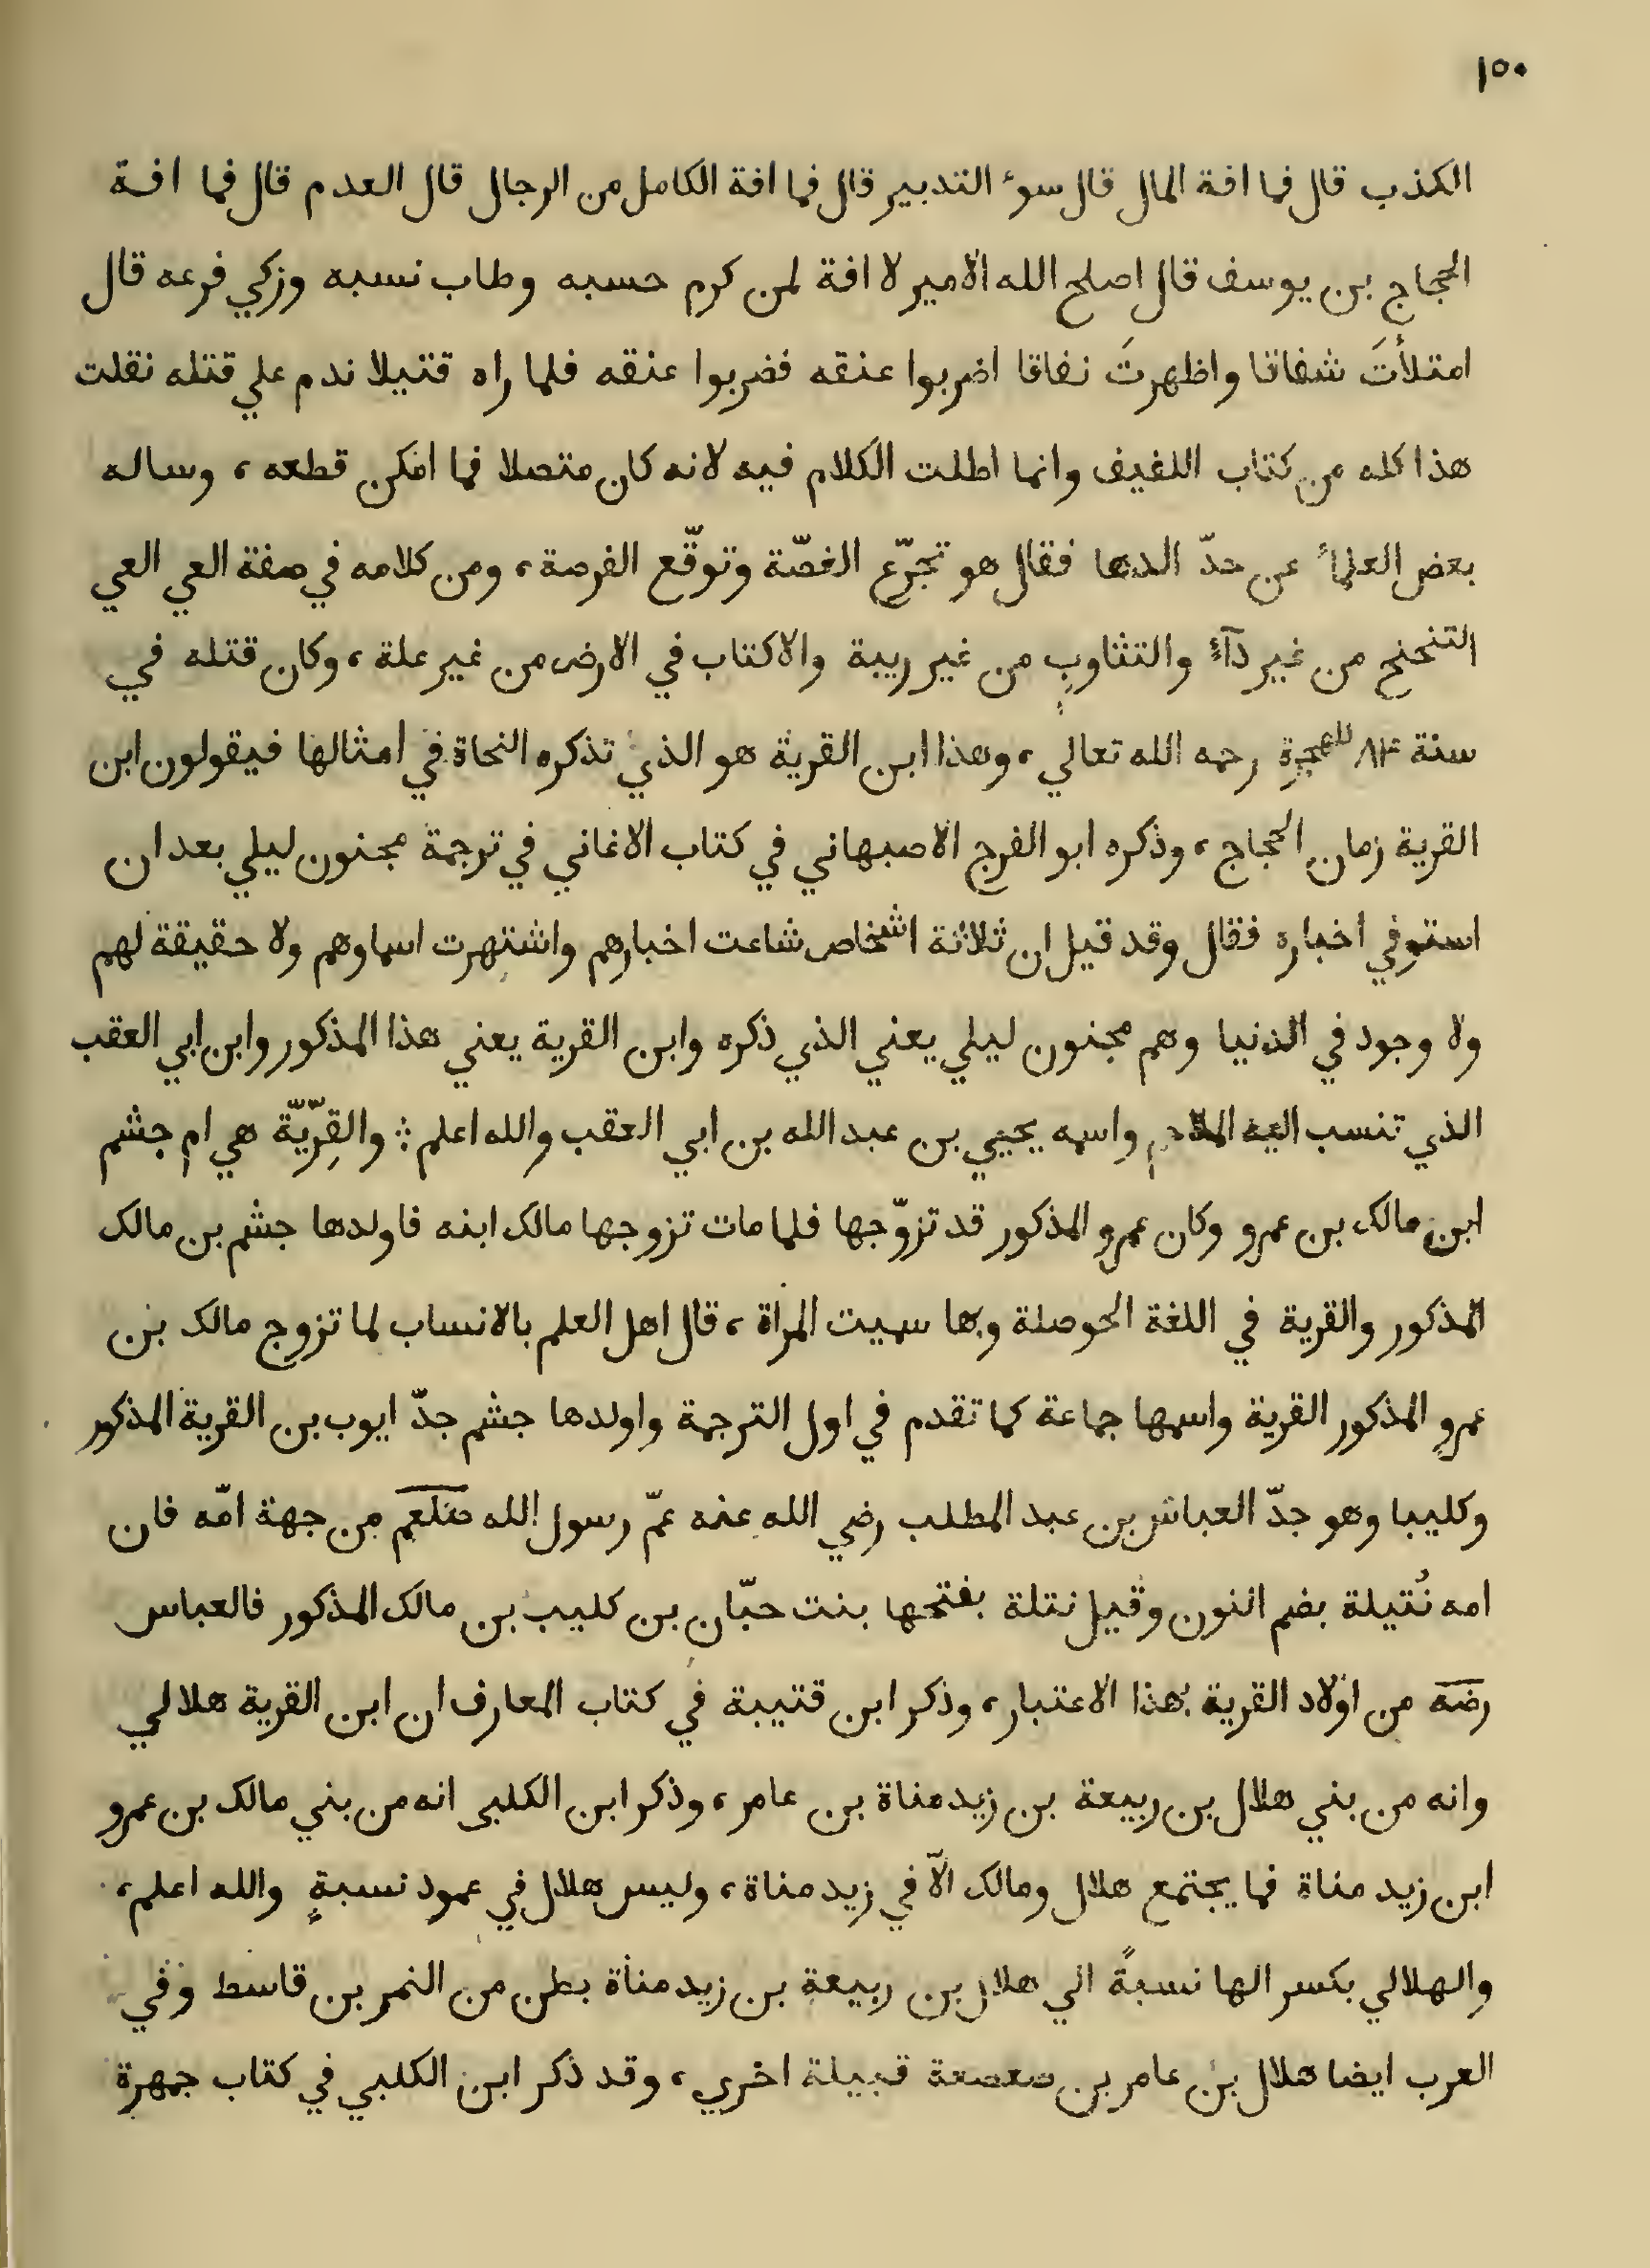 ١٥٠
الكذب قال فما افة المال قال سوء التدبير قال فما افة الكامل من الرجال قال العدم قال فما افة
الحجاج بن يوسف قال اصلح الله الامير لا افة لمن كرم حسبه وطاب نسبه وزكي فرعه قال
امتلأتَ شقاقا واظهرتَ نفاقا اضربوا عنقه فضربوا عنقه فلما راه قتيلا ندم علي قتله نقلت
هذا كله من كتاب اللفيف وانما اطلت الكلام فيه لانه كان متصلا فما امكن قطعه، وساله
بعض العلماء عن حدّ الدها فقال هو تجرّع الغصّة وتوقّع الفرصة، ومن كلامه في صفة العي العي
التنحنح من غير دآء والتثاوب من غير ريبة والاكتاب في الارض من غير علة، وكان قتله في
سنة ٨٤ للهجرة رحمه الله تعالي، وهذا ابن القرية هو الذي تذكره النحاة في امثالها فيقولون ابن
القرية زمان الحجاج، وذكره ابو الفرج الاصبهاني في كتاب الاغاني في ترجمة مجنون ليلي بعد ان
استوفي اخباره فقال وقد قيل ان ثلاثة اشخاص شاعت اخبارهم واشتهرت اسماوهم ولا حقيقة لهم
ولا وجود في الدنيا وهم مجنون ليلي يعني الذي ذكره وابن القرية يعني هذا المذكور وابن ابي العقب
الذي تنسب اليه الملاحم واسمه يحيي بن عبد الله بن ابي العقب والله اعلم ؞ والقِرّيّة هي ام جشم
ابن مالك بن عمرو وكان عمرو المذكور قد تزوّجها فلما مات تزوجها مالك ابنه فاولدها جشم بن مالك
المذكور والقرية في اللغة الحوصلة وبها سميت المراة، قال اهل العلم بالانساب لما تزوج مالك بن
عمرو المذكور القرية واسمها جماعة كما تقدم في اول الترجمة واولدها جشم جدّ ايوب بن القرية المذكور
وكليبا وهو جدّ العباس بن عبد المطلب رضي الله عنه عمّ رسول الله صلعم من جهة امّه فان
امه نُتيلة بضم النون وقيل نتلة بفتحها بنت حبّان بن كليب بن مالك المذكور فالعباس
رضه من اولاد القرية بهذا الاعتبار، وذكر ابن قتيبة في كتاب المعارف ان ابن القرية هلالي
وانه من بني هلال بن ربيعة بن زيد مناة بن عامر، وذكر ابن الكلبى انه من بني مالك بن عمرو
ابن زيد مناة فما يجتمع هلال ومالك الّا في زيد مناة، وليس هلال في عمود نسبةٍ والله اعلم،
والهلالي بكسر الها نسبةً الي هلال بن ربيعة بن زيد مناة بطن من النمر بن قاسط وفي
العرب ايضا هلال بن عامر بن صعصعة قبيلة اخري، وقد ذكر ابن الكلبي في كتاب جمهرة